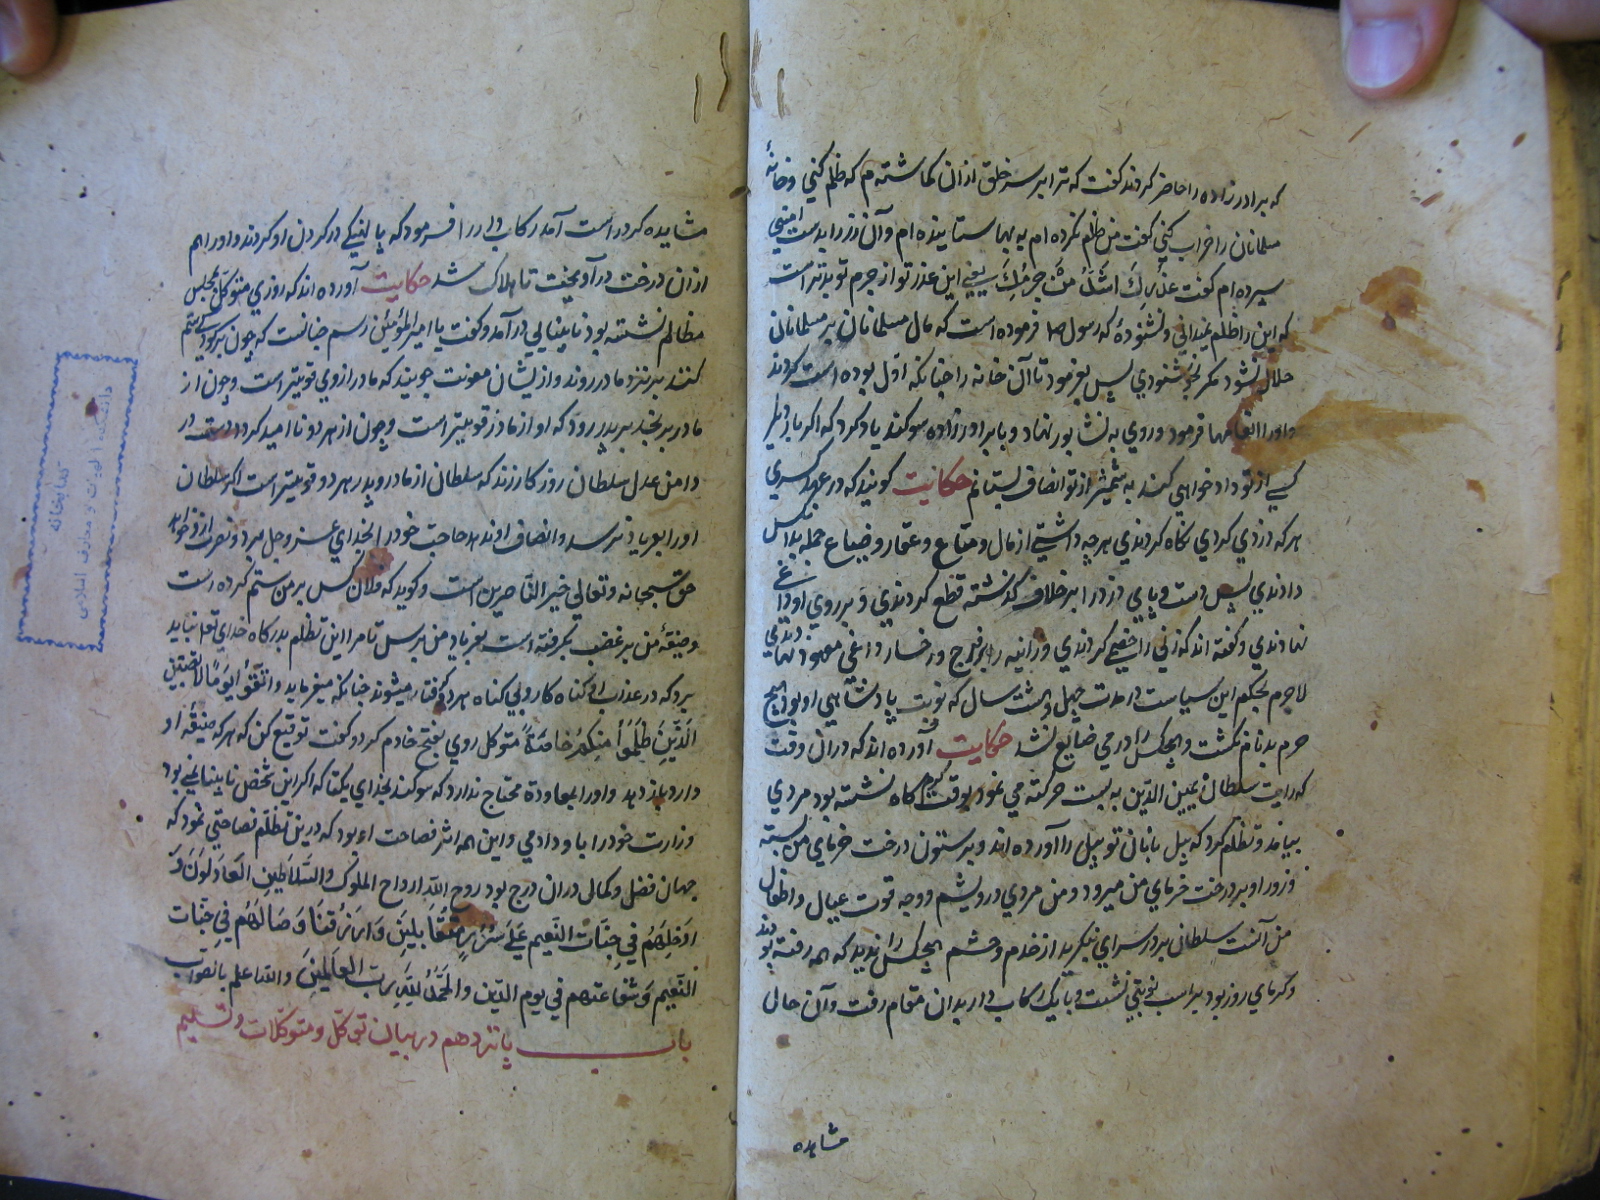 که برادرزاده را حاضر کردند گفت که ترا بر سر خلق از آن کماشته‌ام که ظلم کنی و خانهٔ
مسلمانان را خراب کنی گفت من ظلم نکرده‌ام به بها ستاینده‌ام و آن زر را بدست امینی
سپرده‌ام گفت عذرک اشد من جرمک یعنی این عذر تو از جرم تو بدتر است
که این را ظلم نمیدانی و نشنودهٔ که رسول فرموده است که مال مسلمانان بر مسلمانان
حلال نشود مکر بخوشنودی پس بفرمود تا آن خانه را چنانکه اول بوده است کردند
و او را فرمود و روی به نشابور نهاد و با برادرزاده سوکند یاد کرد که اکر بار دیکر
کسی از تو دادخواهی کند به شمشیر از تو انصاف بستانم حکایت کویند که در عهد کسری
هر که دزدی کردی نکاه کردندی هر چه داشتی از مال و متاع و عقار و ضیاع جمله بدان کس
دادندی پس دست و پای دزد را بر خلاف کذشته قطع کردندی و بر روی او داغی
نهادندی و کفته‌اند که زنی را خصی کردندی و زانیه را بر فرج و رخسار داغی معهود نهادندی
لاجرم بحکم این سیاست در مدت چهل و هشت سال که نوبت پادشاهی او بود هیچ
حرم بدنام نکشت و هیچکس را درمی ضایع نشد حکایت آورده‌اند که در آن وقت
که رایت سلطان یمین الدین به بست حرکت می نمود بوقت کرم کاه نشسته بود مردی
بیامد و تظلم کرد که پیل بانان تو پیل را آورده‌اند و بر ستون درخت خرمای من بسته
و زور او بر درخت خرمای من میرود و من مردی درویشم و وجه قوت عیال و اطفال
من آنست سلطان بر در سرای بنکرید از خدم و حشم هیچکس را ندید که همه رفته بودند
و کرمای روز بود بر اسب نوبتی نشست و با یک رکاب دار بدان مقام رفت و آن حال
مشاهده
مشاهده کرد راست آمد رکاب دار را فرمود که پالهنکی در کردن او کردند و او را هم
از آن درخت در آویخت تا هلاک شد حکایت آورده‌اند که روزی متوکل بمجلس
مظالم نشسته بود نابینایی در آمد و کفت یا امیرالمؤمنین رسم چنانست که چون بر کودکی ستم
کنند بر نزد مادر روند و از ایشان معونت جویند که مادر از وی قوی‌تر است و چون از
مادر برنجد بر پدر رود که او از مادر قوی‌تر است و چون از هر دو ناامید کردد دست در
دامن عدل سلطان روزکار زند که سلطان از مادر و پدر هر دو قوی‌تر است اکر سلطان
او را بفریاد نرسد و انصاف او ندهد حاجت خود را بخدای عز و جل برد و نصرت از و خواهد
حق سبحانه و تعالی خیر الناصرین است و کوید که فلان کس بر من ستم کرده است
و ضیعهٔ من بر غضب بکرفته است بفریاد من برس تا مرا این تظلم بدرکاه خدای تعالی نباید
برد که در عذاب او کناه کار و بی کناه هر دو کرفتار میشوند چنانکه میفرماید واتقوا یوما لا تصیبن
الذین ظلموا منکم خاصة متوکل روی بفتح خادم کرد و کفت توقیع کن که هر که ضیعهٔ او
دارد باز دهد و او را بمعاودة محتاج ندارد که سوکند بخدای یکتا که اکر این شخص نابینا نمی بود
وزارت خود را با و دادمی و این همه اثر فصاحت او بود که در این تظلم فصاحتی نمود که
جهان فضل و کمال در آن درج بود روح الله ارواح الملوک والسلاطین العادلون و
ادخلهم فی جنات النعیم علی سرر متقابلین وارزقنا وصالهم فی جنات
النعیم وشفاعتهم فی یوم الدین والحمد لله رب العالمین والله اعلم بالصواب
باب پانزدهم در بیان توکل و متوکلات و تسلیم